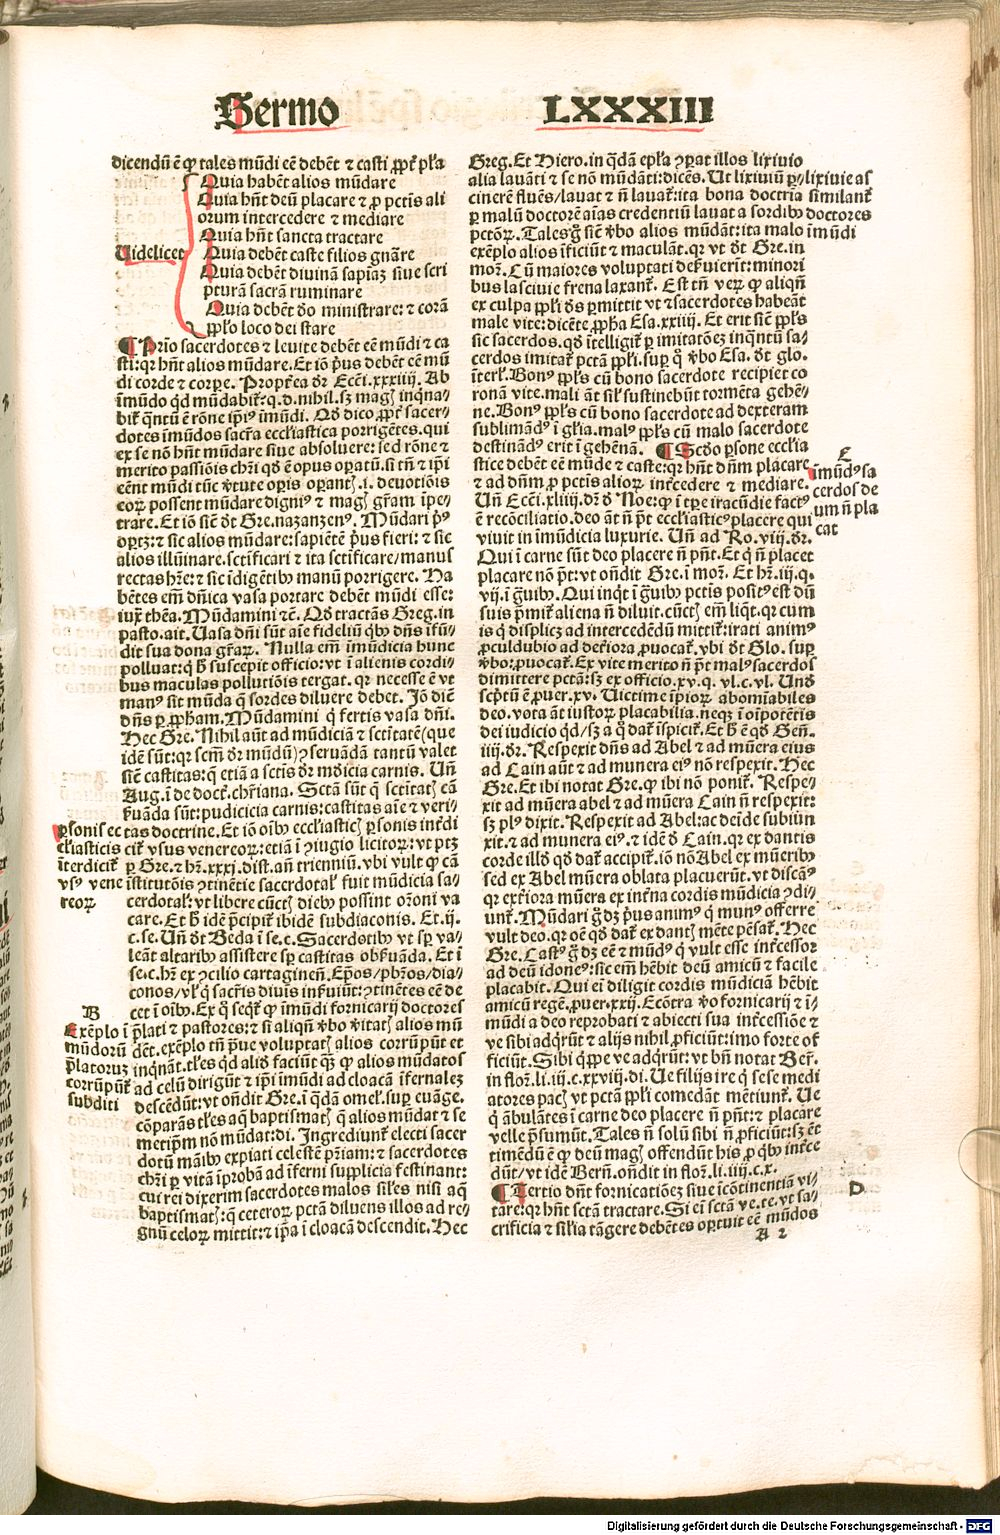 Sermo LXXXIII
dicendū ē ꝙ tales mūdi eē debēt ⁊ casti ꝓpt̄ pl̄a
Quia habēt alios mūdare
Quia hn̄t deū placare ⁊ ꝓ pctīs ali
orum intercedere ⁊ mediare
Quia hn̄t sancta tractare
Uidelicet Quia debēt caste filios gn̄are
Quia debēt diuinā sapiaꝫ siue scri
pturā sacrā ruminare
Quia debēt dō ministrare: ⁊ corā
ꝓpl̄o loco dei stare
Prio sacerdotes ⁊ leuite debēt eē mūdi ⁊ ca
sti: qꝛ hn̄t alios mūdare. Et iō pꝰus debēt eē mū
di corde ⁊ corꝑe. Propt̄ea dꝛ Ecci. xxxiiij. Ab
īmūdo qd mūdabit̄: q. d. nihil. sꝫ magꝭ inqna/
bit̄ qn̄tū ē rōne ipīꝰ īmūdi. Qd dico ꝓpt̄ sacer/
dotes īmūdos sacr̄a eccl̄iastica porrigētes. qui
ex se nō hn̄t mūdare siue absoluere: sed rōne ⁊
merito passiōis chꝛi qd ē opus oꝑatū. si tn̄ ⁊ ip̄i
eēnt mūdi tūc v̄tute opis oꝑantꝭ .i. deuotiōis
eoꝝ possent mūdare digniꝰ ⁊ magꝭ gr̄am īpe/
trare. Et iō sic̄ dt Gre. nazanzenꝰ. Mūdari pꝰ
oꝑtꝫ: ⁊ sic alios mūdare: sapiētē pꝰus fieri: ⁊ sic
alios illūinare. sctīficari ⁊ ita sctīficare/ manus
rectas hr̄e: ⁊ sic īdigētibꝰ manū porrigere. Ha
bētes em̄ dn̄ica vasa portare debēt mūdi esse:
iuxt̄ thēa. Mūdamini ⁊c̄. Qd tractās Greg. in
pasto. ait. Uasa dn̄i sūt aīe fideliū qbꝰ dn̄s ifū/
dit sua dona gr̄aꝝ. Nulla em̄ īmūdicia hunc
polluat: q h suscepit officio: vt ī alienis cordi/
bus maculas pollutiōis tergat. qꝛ necesse ē vt
manꝰ sit mūda q sordes diluere debet. Iō diē
dn̄s ꝑ ꝓpham. Mūdamini q fertis vasa dn̄i.
Hec Gre. Nihil aūt ad mūdiciā ⁊ sctītatē (que
idē sūt: qꝛ scm̄ dꝛ mūdū) ꝯseruādā tantū valet
sic̄ castitas: q etiā a sctīs dꝛ mūdicia carnis. Un̄
Aug. ī de doct. chr̄iana. Sctā sūt q sctītatꝭ cā
ẜuāda sūt: pudicicia carnis: castitas aīe ⁊ veri/
tas doctrine. Et iō oībꝰ eccl̄iasticꝭ ꝑsonis int̄di
cit̄ vsus venereoꝝ: etiā ī ꝯiugio licitoꝝ: vt ptꝫ
ꝑ Gre. ⁊ hꝛ. xxxi. dist. an̄ triennium. vbi vult ꝙ cā
istitutōis ꝯtinētie sacerdotal̄ fuit mūdicia sa/
cerdotal̄: vt libere cūctꝭ diebꝰ possint or̄oni va
care. Et h idē p̄cipit̄ ibidē subdiaconis. Et .ij.
c. se. Un̄ dt Beda ī se. c. Sacerdotibꝰ vt sꝑ va/
leāt altaribꝰ assistere sꝑ castitas obẜuāda. Et ī
se. c. hꝛ ex ꝯcilio cartaginen̄. Ep̄os/ pbr̄os/ dia/
conos/ vl̄ q sacr̄is diuīs inẜuiūt: ꝯtinētes eē de
cet ī oībꝰ. Ex q seqt̄ ꝙ īmūdi fornicarij doctores
p̄lati ⁊ pastores: ⁊ si aliqn̄ v̄bo v̄itatꝭ alios mū
dēt. exēplo tn̄ p̄ue voluptatꝭ alios corrūpūt et
inqnāt. tl̄es qd alid faciūt qꝫ ꝙ alios mūdatos
ad celū dirigūt ⁊ ip̄i īmūdi ad cloacā ifernaleꝫ
descēdūt: vt on̄dit Gre. ī qdā omel. suꝑ euāge.
cōparās tl̄es aq baptismatꝭ q alios mūdat ⁊ se
metip̄m nō mūdat: di. Ingrediunt̄ electi sacer
dotū māibꝰ expiati celestē pr̄iam: ⁊ sacerdotes
chꝛi ꝑ vitā īprobā ad īferni supplicia festinant:
cui rei dixerim sacerdotes malos sil̄es nisi aq
baptismatꝭ: q ceteroꝝ pctā diluens illos ad re/
gnū celoꝝ mittit: ⁊ ip̄a ī cloacā descendit. Hec
ꝑsonis ec
cl̄iasticis
īterdicit̄
vsꝰ vene
reoꝝ
B
Exēplo ī
mūdorū
p̄latoruꝫ
corrūpūt̄
subditi
Greg. Et Hiero. in qdā epl̄a ꝯꝑat illos lixiuio
alia lauāti ⁊ se nō mūdāti: dicēs. Ut lixiuiū ꝑ/ lixiuie as
cinerē fluēs/ lauat ⁊ n̄ lauat̄: ita bona doctria similant̄
ꝑ malū doctorē aīas credentiū lauat a sordibꝰ doctores
pctōꝝ. Tales g̊ sic̄ v̄bo alios mūdāt: ita malo īmūdi
exēplo alios īficiūt ⁊ maculāt. qꝛ vt dt Gre. in
moꝝ. Cū maiores voluptati deẜuierīt: minori
bus lasciuie frena laxant̄. Est tn̄ veꝝ ꝙ aliqn̄
ex culpa ꝓpl̄i ds ꝑmittit vt ⁊ sacerdotes habeāt
male vite: dicēte ꝓpha Esa. xxiiij. Et erit sic̄ ꝓpl̄s
sic sacerdos. qd itelligit̄ ꝑ imitatōeꝫ inqntū sa/
cerdos imitat̄ pctā ꝓpl̄i. suꝑ q v̄bo Esa. dt glo.
īterl̄. Bonꝰ ꝓpl̄s cū bono sacerdote recipiet co
ronā vite. mali āt sil̄ sustinebūt tormēta gehē/
ne. Bonꝰ ꝓpl̄s cū bono sacerdote ad dexteram
sublimādꝰ ī gl̄ia. malꝰ ꝓpl̄s cū malo sacerdote
destinādꝰ erit ī gehēnā. Scdo ꝑsone eccl̄ia
stice debēt eē mūde ⁊ caste: qꝛ hn̄t dn̄m placare
⁊ ad dn̄m ꝓ pctis alioꝝ int̄cedere ⁊ mediare.
Un̄ Ecci. xliiij. dꝛ d Noe: ꝙ ī tꝑe iracūdie factꝰ
ē recōciliatio. deo āt n̄ pt̄ eccl̄iasticꝰ placere qui
viuit in īmūdicia luxurie. Un̄ ad Ro. viij. dꝛ.
Qui ī carne sūt deo placere n̄ pn̄t. Et q n̄ placet
placare nō pt̄: vt on̄dit Gre. ī moꝝ. Et hꝛ. iij. q.
vij. ī g̊uibꝰ. Qui inqt ī g̊uibꝰ pctis positꝰ est dū
suis p̄mit̄ aliena n̄ diluit. cūctꝭ em̄ liqt. qꝛ cum
is q displicꝫ ad intercedēdū mittit̄: irati animꝰ
ꝓculdubio ad det̄iora ꝓuocat̄. vbi dt Glo. suꝑ
v̄bo: ꝓuocat̄. Ex vite merito n̄ pt̄ malꝰ sacerdos
dimittere pctā: sꝫ ex officio. xv. q. vl. c. vl. Und
scptū ē ꝓuer. xv. Uictime ip̄ioꝝ abomīabiles
deo. vota āt iustoꝝ placabilia. neqꝫ ī oīpotētis
dei iudicio qd/ sꝫ a q dat̄ īspicit̄. Et h ē qd Gen̄.
iiij. dꝛ. Respexit dn̄s ad Abel ⁊ ad mūera eius
ad Cain aūt ⁊ ad munera eiꝰ nō respexit. Hec
Gre. Et ibi notat Gre. ꝙ ibi nō ponit̄. Respe/
xit ad mūera abel ⁊ ad mūera Cain n̄ respexit:
sꝫ plꝰ dixit. Respexit ad Abel: ac deīde subiun
xit. ⁊ ad munera eiꝰ. ⁊ idē d Cain. qꝛ ex dantis
corde illd qd dat̄ accipit̄. iō nō Abel ex mūeribꝰ
sed ex Abel mūera oblata placuerūt. vt discāꝰ
qꝛ ext̄iora mūera ex int̄na cordis mūdicia ꝯdi/
unt̄. Mūdari g̊ dꝫ pꝰus animꝰ q munꝰ offerre
vult deo. qꝛ oē qd dat̄ ex dantꝭ mēte pēsat̄. Hec
Gre. Castꝰ g̊ dꝫ eē ⁊ mūdꝰ q vult esse int̄cessor
ad deū idoneꝰ: sic em̄ hēbit deū amicū ⁊ facile
placabit. Qui ei diligit cordis mūdiciā hēbit
amicū regē. ꝓuer. xxij. Ecōtra v̄o fornicarij ⁊ ī/
mūdi a deo reprobati ⁊ abiecti sua int̄cessiōe ⁊
ve sibi adqrūt ⁊ alijs nihil ꝓficiūt: imo forte of
ficiūt. Sibi qꝑpe ve adqrūt: vt bn̄ notat Ber̄.
in floꝝ. li. iij. c. xxviij. di. Ue filijs ire q sese medi
atores pacꝭ vt pctā ꝓpl̄i comedāt mētiunt̄. Ue
q ābulātes ī carne deo placere n̄ pn̄t: ⁊ placare
velle p̄sumūt. Tales n̄ solū sibi n̄ ꝓficiūt: sꝫ ēt
timēdū ē ꝙ deū magꝭ offendūt his ꝓ qbꝰ int̄ce
dūt/ vt idē Bern̄. on̄dit in floꝝ. li. iiij. c. x.
Tertio dn̄t fornicatiōeꝫ siue īcōtinentiā vi/
tare: qꝛ hn̄t sctā tractare. Si ei sctā ve. te. vt sa/
crificia ⁊ sil̄ia tāgere debētes oꝑtuit eē mūdos
E
īmūdꝰ sa
cerdos de
um n̄ pla
cat
D
A 2
Digitalisierung gefördert durch die Deutsche Forschungsgemeinschaft - DFG